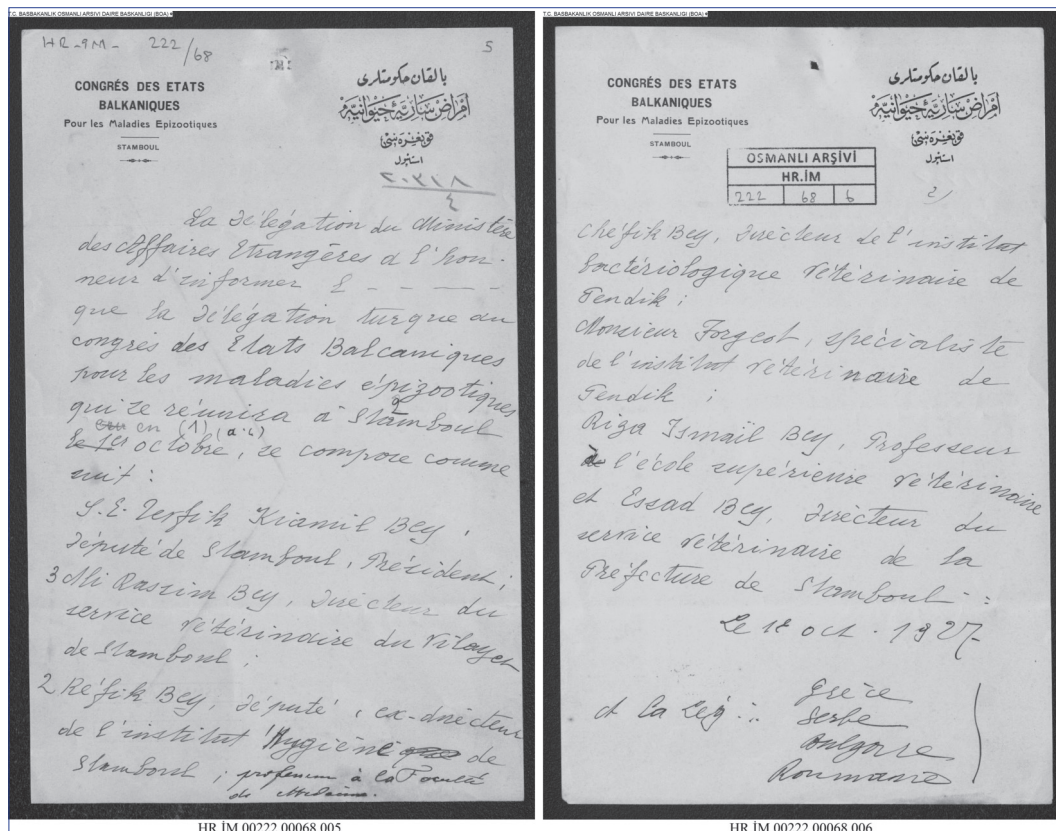 T.C. BASBAKANLIK OSMANLI ARSIVI DAIRE BASKANLIGI (BOA)
HR-İM- 222/68
5
CONGRÉS DES ETATS
BALKANIQUES
Pour les Maladies Epizootiques
STAMBOUL
بالقان حكومتلری
أمراض ساریهٔ حیوانیه
قونغره سی
استانبول
٢٠٣١٨
٤
La Délégation du Ministère
des Affaires Etrangères a l'hon-
neur d'informer L - - - - -
que la délégation turque au
congrès des Etats Balcaniques
pour les maladies épizootiques
qui se réunira à Stamboul
en (1) (a.c)
le 1er octobre, se compose comme
suit :
S.E. Tevfik Kiamil Bey,
député de Stamboul, Président ;
3 Ali Rassim Bey, Directeur du
service vétérinaire du vilayet
de Stamboul ;
2 Réfik Bey, député, ex-directeur
de l'institut Hygiène de
Stamboul ; professeur à la Faculté
de Médecine.
HR.İM.00222.00068.005
T.C. BASBAKANLIK OSMANLI ARSIVI DAIRE BASKANLIGI (BOA)
CONGRÉS DES ETATS
BALKANIQUES
Pour les Maladies Epizootiques
STAMBOUL
بالقان حكومتلری
أمراض ساریهٔ حیوانیه
قونغره سی
استانبول
OSMANLI ARŞİVİ
HR.İM
222 68 6
2)
Chéfik Bey, Directeur de l'institut
bactériologique vétérinaire de
Pendik ;
Monsieur Forgeot, spécialiste
de l'institut vétérinaire de
Pendik ;
Riza Ismaïl Bey, Professeur
à l'école supérieure vétérinaire
et Essad Bey, Directeur du
service vétérinaire de la
Préfecture de Stamboul.
Le 1er oct. 1927
A la Lég :
Grèce
Serbe
Bulgarie
Roumanie
HR.İM.00222.00068.006